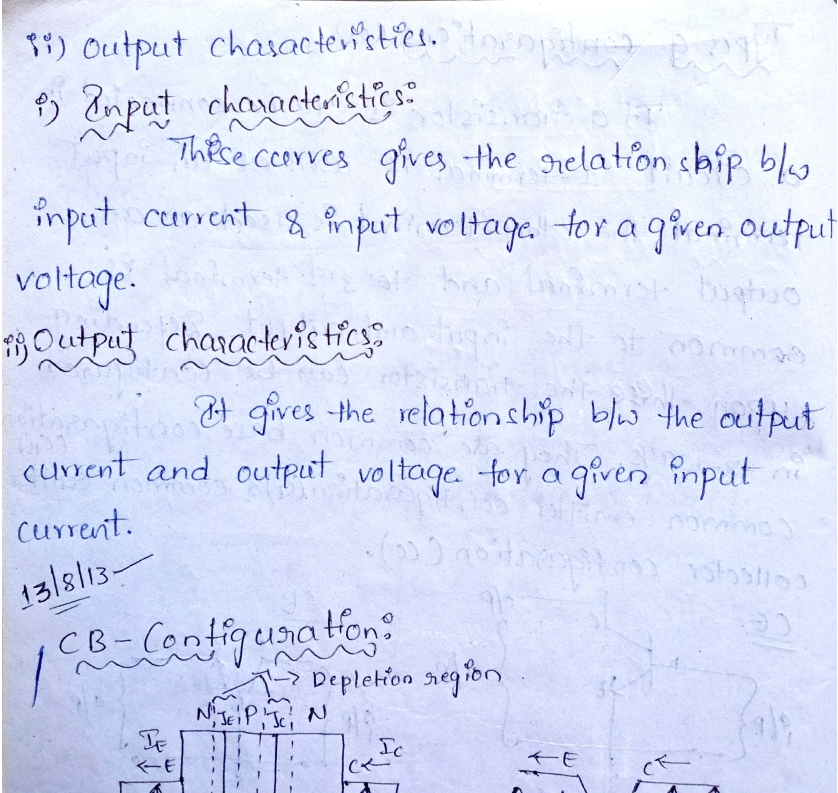 ii) output characteristics.
i) Input characteristics:
These curves gives the relation ship b/w
input current & input voltage for a given output
voltage.
ii) Output characteristics:
It gives the relationship b/w the output
current and output voltage for a given input
current.
13/8/13
CB-Configuration:
→ Depletion region
N JE P JC N
IE IC
←E C← ←E C←